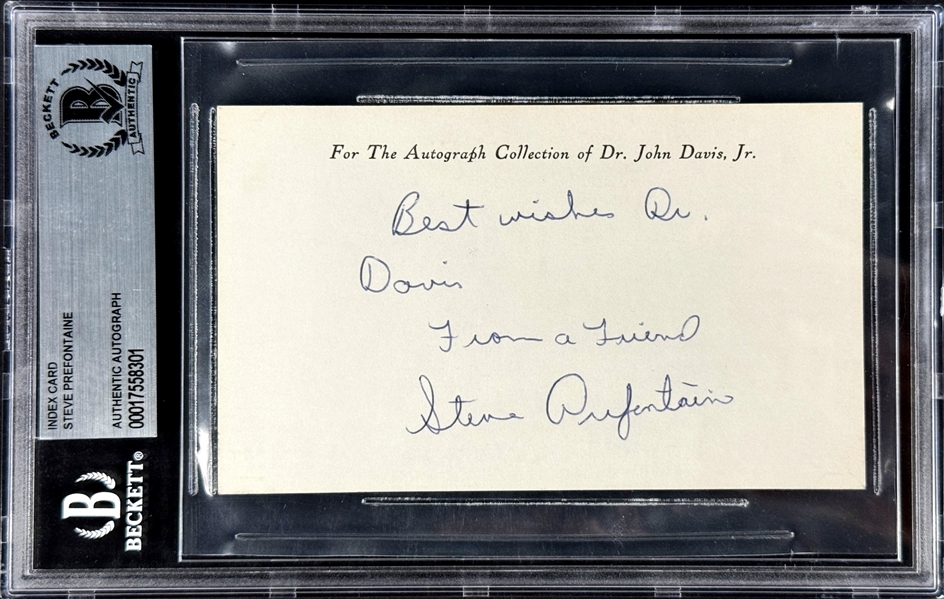 BECKETT
B
AUTHENTIC
INDEX CARD
STEVE PREFONTAINE
AUTHENTIC AUTOGRAPH
00017558301
B
BECKETT®
For The Autograph Collection of Dr. John Davis, Jr.
Best wishes Dr.
Davis
From a Friend
Steve Prefontain